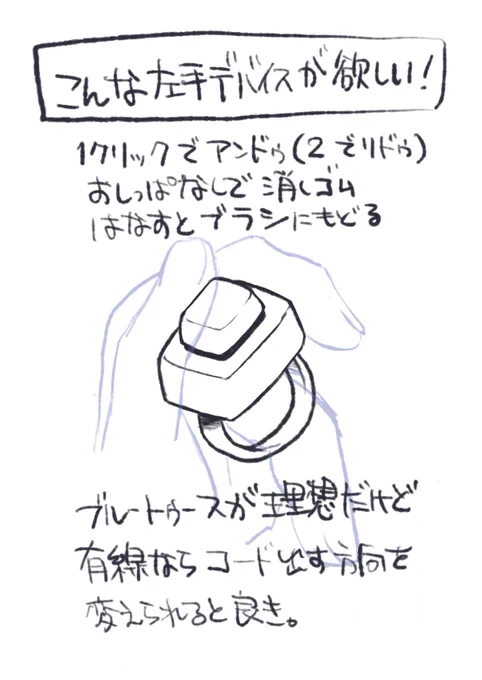 こんな左手デバイスが欲しい!
1クリックでアンドゥ(2でリドゥ)
おしっぱなしで消しゴム
はなすとブラシにもどる
ブルートゥースが理想だけど
有線ならコード出す方向を
変えられると良き。